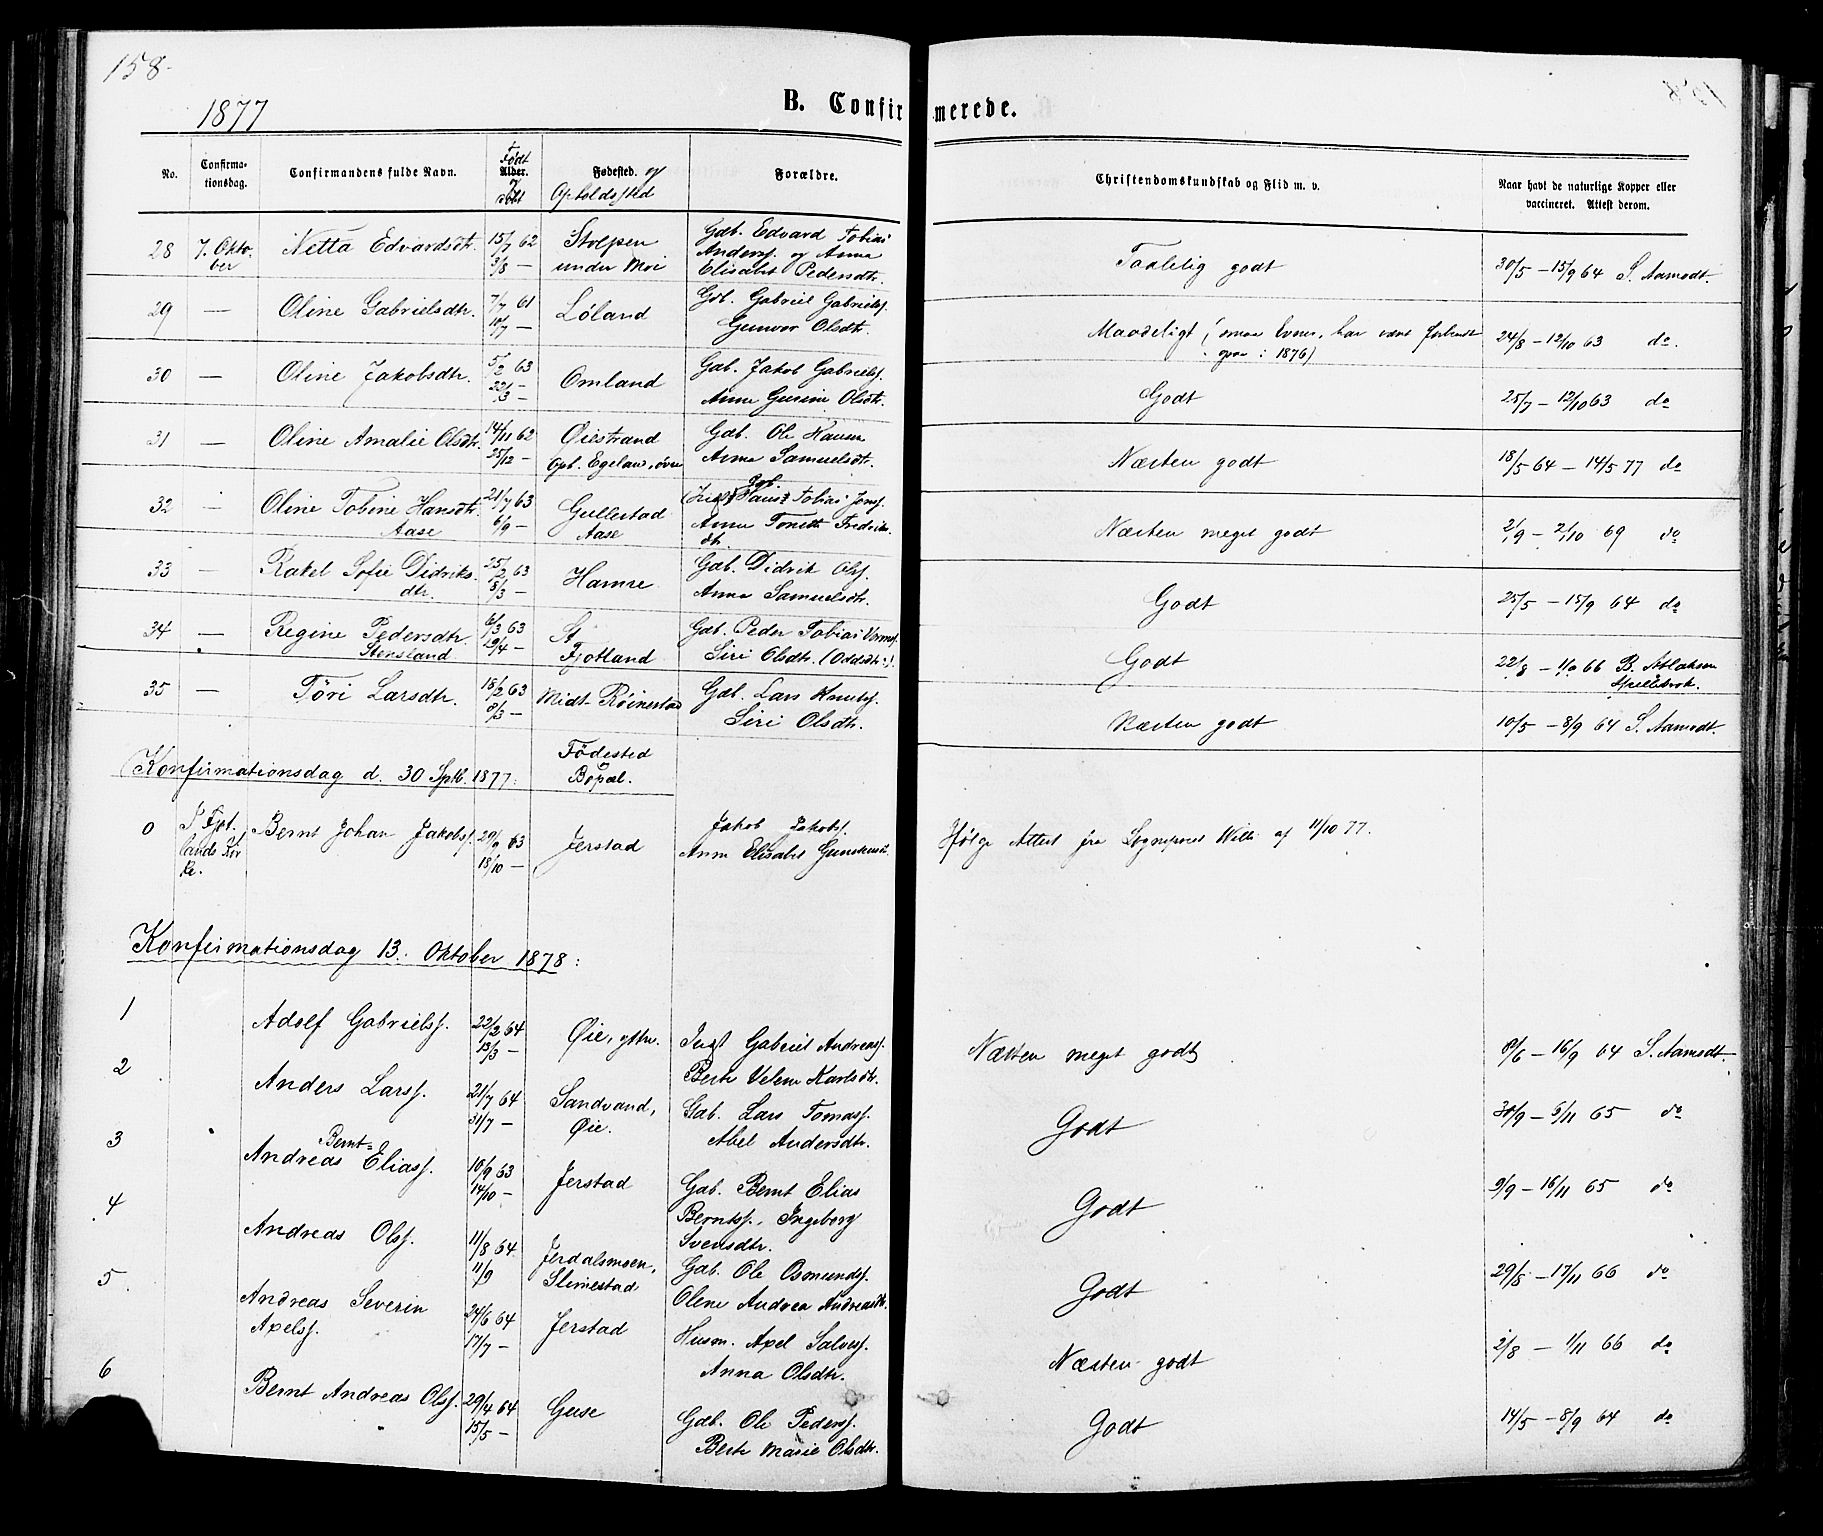 158
1877
B. Confirmerede.
No. Confirma-tionsdag. Confirmandens fulde Navn. Født Alder. og døbt Fødested. og Opholdssted Forældre. Christendomskundskab og Flid m. v. Naar havt de naturlige Kopper eller vaccineret. Attest derom.
28 7. Okto-ber Netta Edvardsdtr. 15/7 62 3/8 — Stolpen under Moi Gdb. Edvard Tobias Anderss. og Anna Elisabet Pedersdtr. Taalelig godt 30/5 – 15/9 64 S. Aamodt.
29 — Oline Gabrielsdtr. 7/7 61 10/7 — Løland Gdb. Gabriel Gabrielss. Gunvor Olsdtr. Maadeligt (smaa Evner, har været 1876) 24/8 – 12/10 63 do.
30 — Oline Jakobsdtr. 5/2 63 22/3 — Omland Gdb. Jakob Gabrielss. Anne Gurine Olsdtr. Godt 25/7 – 12/10 63 do
31 — Oline Amalie Olsdtr. 14/11 62 25/12 — Øiestrand Oph. Egeland, øvre Gdb. Ole Hansen Anna Samuelsdtr. Næsten godt 18/5 64 – 14/5 77 do
32 — Oline Tobine Hansdtr. Aase 21/7 63 6/9 — Gullestad Aase Gdb. Hans Tobias Jonss. Anne Tonette Fredriks dtr. Næsten meget godt 2/9 – 2/10 69 do
33 — Rakel Sofie Didriks-dtr. 25/2 63 8/3 — Hamre Gdb. Didrik Olss. Anna Samuelsdtr. Godt 25/5 – 15/9 64 do
34 — Regine Pedersdtr. Stensland 6/3 63 12/4 — St. Fjotland Gdb. Peder Tobias Siri Olsdtr. (Oddsdtr:). Godt 22/8 – 66 B. Atlaksen
35 — Tøri Larsdtr. 18/2 63 8/3 — Midt-Røinestad Gdb. Lars Knuts. Siri Olsdtr. Næsten godt 10/5 – 8/9 64 S. Aamodt.
Konfirmationsdag d. 30 Septb. 1877: Fødested Bopæl.
0 I Fjot-lands Kir-ke. Bernt Johan Jakobss. 20/9 63 18/10 — Jerstad Jakob Jakobss. Anne Elisabet Ifølge Attest fra Sognepræst Wille af 11/10 77.
Konfirmationsdag 13. Oktober 1878:
1 Adolf Gabrielss. 22/2 64 13/3 — Øie, yttre. Gabriel Andreass. Berte Velene Karlsdtr. Næsten meget godt 8/6 – 16/9 64 S. Aamodt.
2 Anders Larss. 21/7 64 31/7 — Sandvand, Øie. Gdb. Lars Tomass. Abel Andersdtr. Godt 30/9 – 6/11 65 do
3 Andreas Bernt- Eliass. 10/9 63 14/10 — Jerstad Gdb. Bernt Elias Berntss., Ingeborg Svensdtr. Godt 9/9 – 16/11 65 do
4 Andreas Olss. 11/8 64 11/9 Jerdalsmoen, Slimestad Gdb. Ole Osmundss. Olene Andrea Andreasdtr. Godt 29/8 – 17/11 66 do
5 Andreas Severin Axelss. 24/6 64 17/7 — Jerstad Husm. Axel Salvess. Anna Olsdtr. Næsten godt 2/8 – 1/11 66 do
6 Bernt Andreas Olss. 29/4 64 15/5 — Guse Gdb. Ole Pederss. Berte Marie Olsdtr. Godt 14/5 – 8/9 64 do